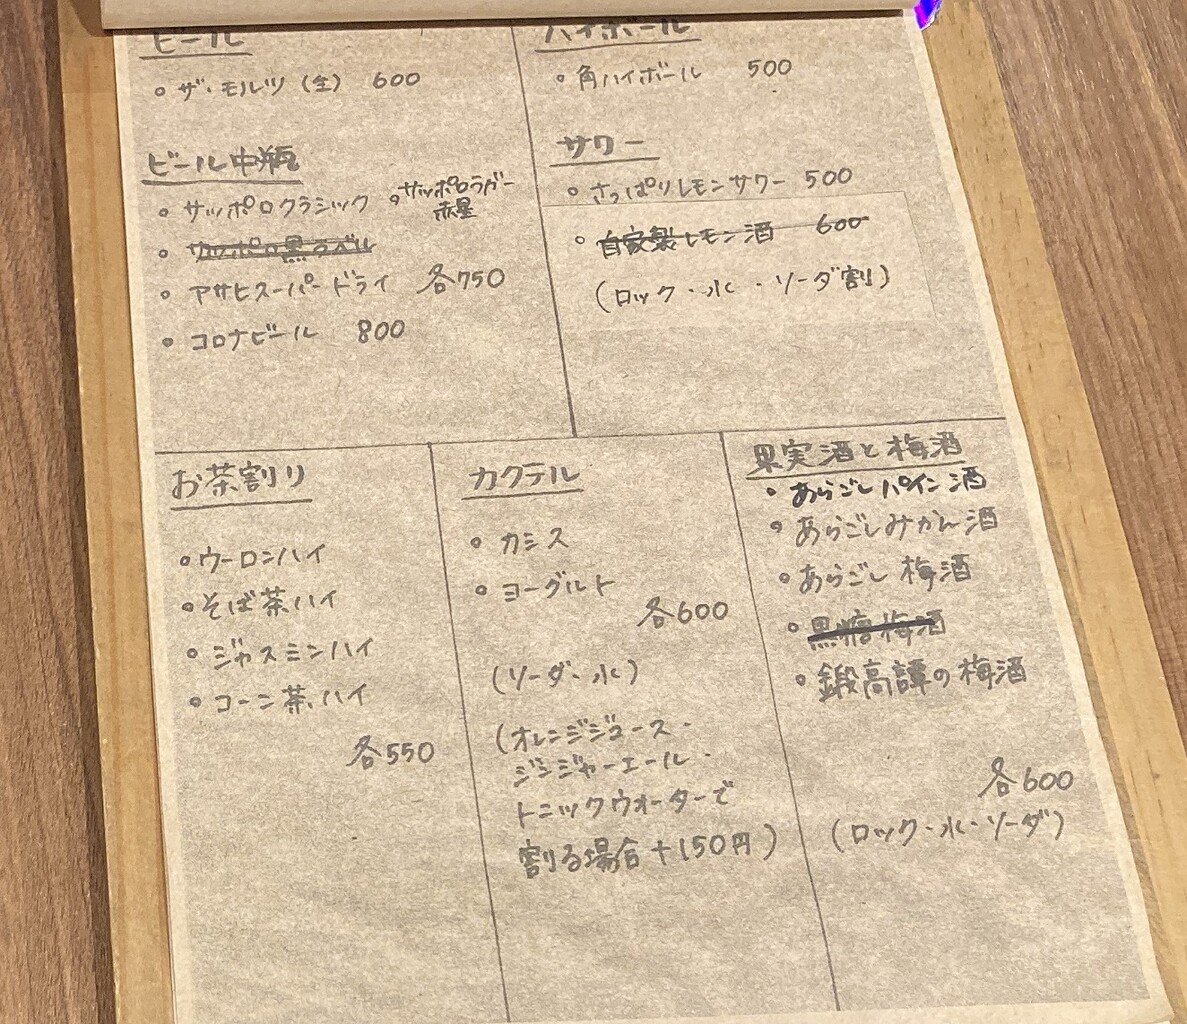 ビール
• ザ・モルツ (生) 600
ビール中瓶
• サッポロクラシック • サッポロラガー
赤星
• サッポロ黒ラベル
• アサヒスーパードライ 各750
• コロナビール 800
ハイボール
• 角ハイボール 500
サワー
• さっぱりレモンサワー 500
• 自家製レモン酒 600
(ロック・水・ソーダ割)
お茶割り
• ウーロンハイ
• そば茶ハイ
• ジャスミンハイ
• コーン茶ハイ
各550
カクテル
• カシス
• ヨーグルト
各600
(ソーダ・水)
(オレンジジュース・
ジンジャーエール・
トニックウォーターで
割る場合+150円)
果実酒と梅酒
• あらごしパイン酒
• あらごしみかん酒
• あらごし梅酒
• 黒糖梅酒
• 鍛高譚の梅酒
各600
(ロック・水・ソーダ)